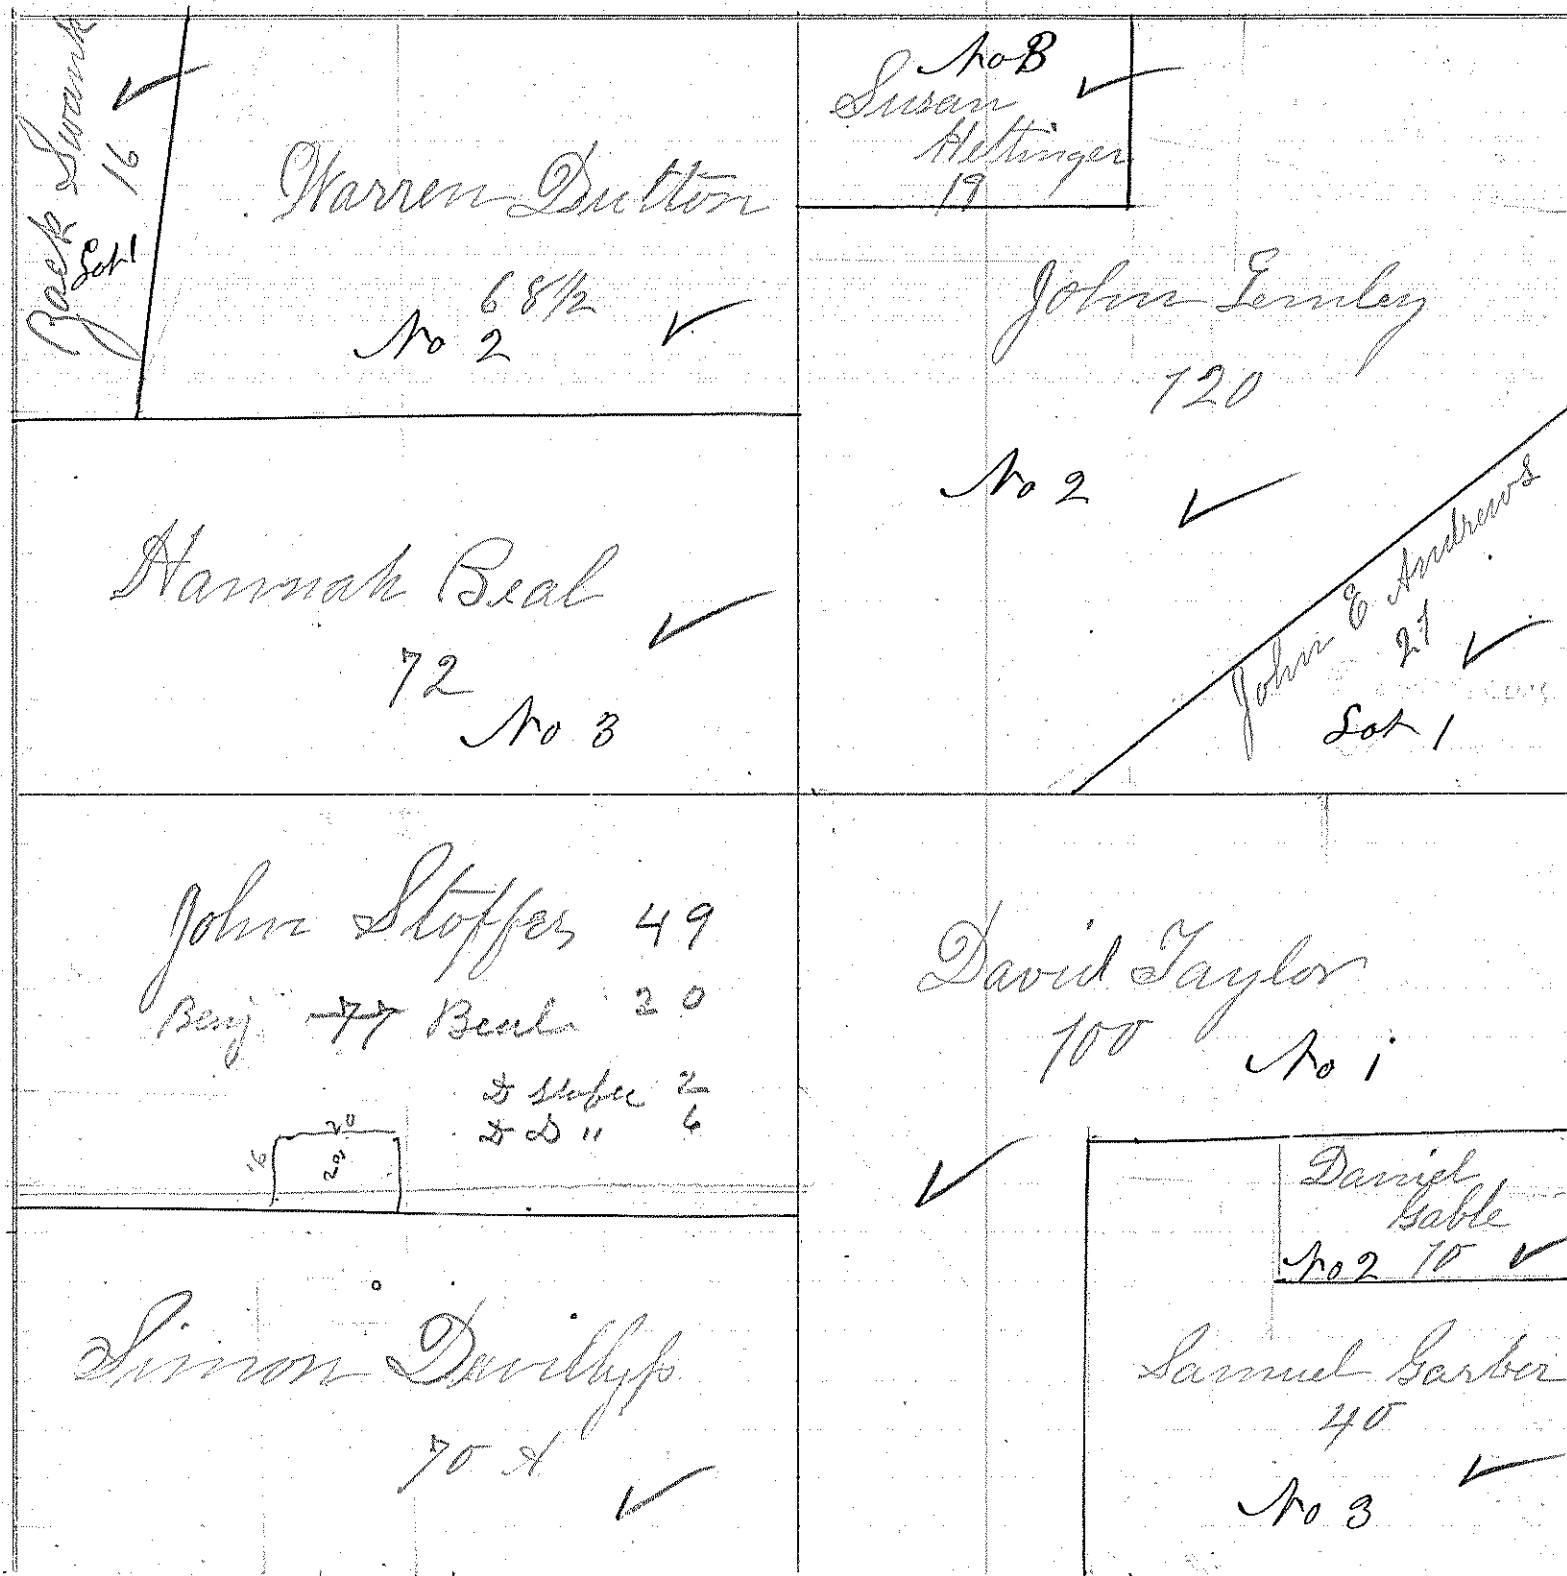 Zack Swank
16
Lot 1
Warren Dutton
68 1/2
No 2
No B
Susan
Heltinger
19
John Lemley
120
No 2
John E Andrews
27
Lot 1
Hannah Beal
72
No 3
John Stoffer 49
Benj 77 Beal 20
D Stofer 2
D D " 6
20
16
David Taylor
100
No 1
Daniel
Gable
No 2 10
Samuel Garber
40
No 3
Simon
70 A